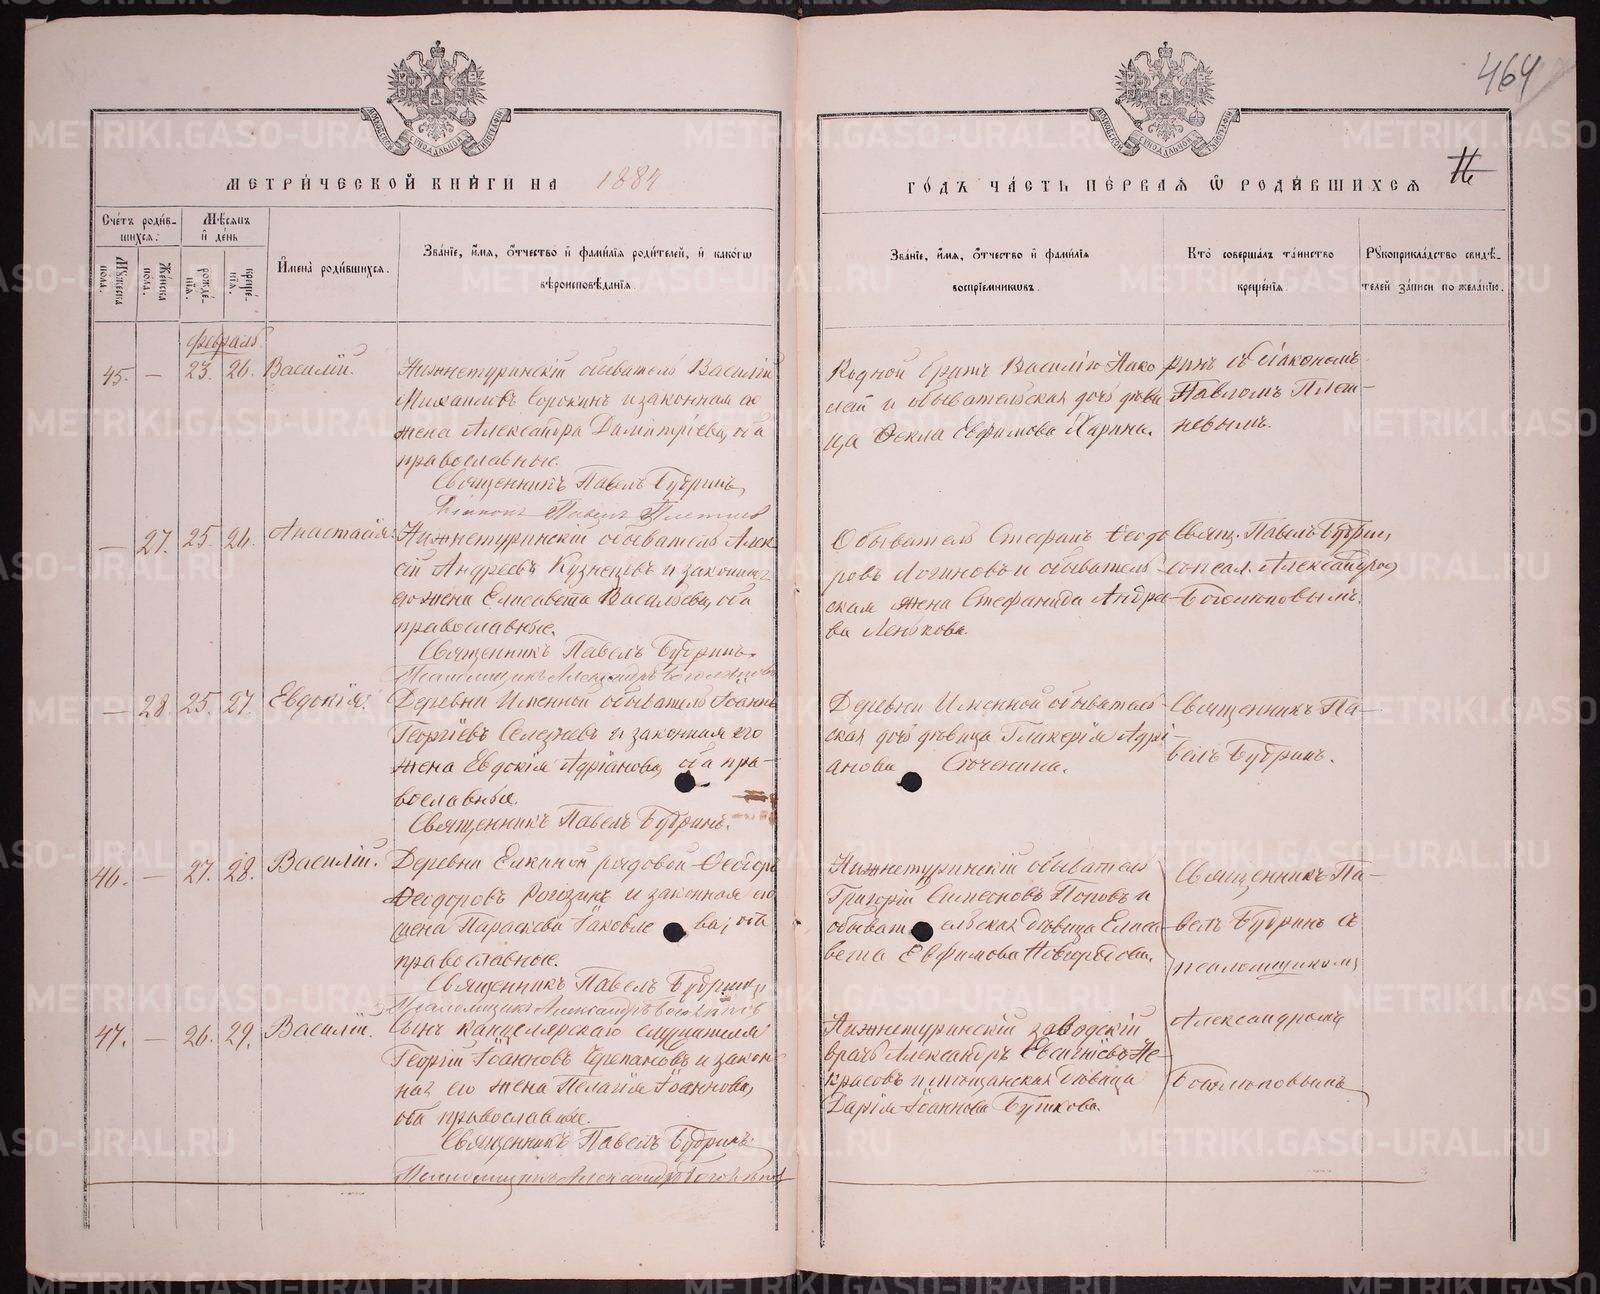 464
МЕТРИЧЕСКОЙ КНИГИ НА 1884
ГОДЪ ЧАСТЬ ПЕРВАЯ Ѿ РОДИВШИХСЯ
Счетъ родив-
шихся:
Мѣсяцъ
и день
Мужеска пола.
Женска пола.
рожде-
нія.
креще-
нія.
Имена родившихся.
Званіе, имя, отчество и фамилія родителей, и какогѡ
вѣроисповѣданія.
Званіе, имя, отчество и фамилія
воспріемниковъ.
Кто совершалъ таинство
крещенія
Рукоприкладство свидѣ-
телей записи по желанію.
февраль
45. — 23. 26. Василій.
Нижнетуринскій обыватель Василій
Михаиловъ Сорокинъ и законная ею
жена Александра Димитріева, оба
православные.
Священникъ Павелъ Бубринъ,
Діаконъ Павелъ
Родной братъ Василію Нико
лай и обывательская дочь дѣви
ца Ѳекла Евфимова Ларина.
ринъ съ діакономъ
Павломъ Плот-
невымъ.
— 27. 25. 26. Анастасія.
Нижнетуринскій обыватель Алек
сѣй Андреевъ Кузнецовъ и законна
его жена Елисавета Васильева, оба
православные.
Священникъ Павелъ Бубринъ.
Псаломщикъ Александръ Боголюбовъ
Обыватель Стефанъ Ѳеодо
ровъ Логиновъ и обыватель
ская жена Стефанида Андре
ва Ленькова.
Свящ. Павелъ Бубрин,
с псал. Александром
Боголюповымъ.
— 28. 25. 27. Евдокія.
Деревни Именной обыватель Іоаннъ
Георгіевъ Селезневъ и законная его
жена Евдокія Адріанова, оба пра-
вославные.
Священникъ Павелъ Бубринъ.
Деревни Именной обыватель
ская дочь дѣвица Гликерія Адрі
анова
Священникъ Па-
велъ Бубринъ.
46. — 27. 28. Василій.
Деревни Елкиной рядовой Ѳеодоръ
Ѳеодоровъ Рогозинъ и законная его
жена Параскева Іаковлева, оба
православные.
Священникъ Павелъ Бубринъ
Псаломщикъ Александръ Боголюповъ
Нижнетуринскій обыватель
Григорій Симеоновъ Поповъ и
обывательская дѣвица Елиса
вета Евфимова
Священникъ Па-
велъ Бубринъ съ
псаломщикомъ
47. — 26. 29. Василій.
Сынъ канцелярскаго служителя
Георгій Іоанновъ Черепановъ и закон
ная его жена Пелагія Іоаннова,
оба православные.
Священникъ Павелъ Бубринъ
Псаломщикъ Александръ Боголюповъ
Нижнетуринскій заводскій
врачъ Александръ Евсигніевъ Не-
красовъ и мѣщанская дѣвица
Дарія Іоаннова Бушкова.
Александромъ
Боголюповымъ
METRIKI.GASO-URAL.RU